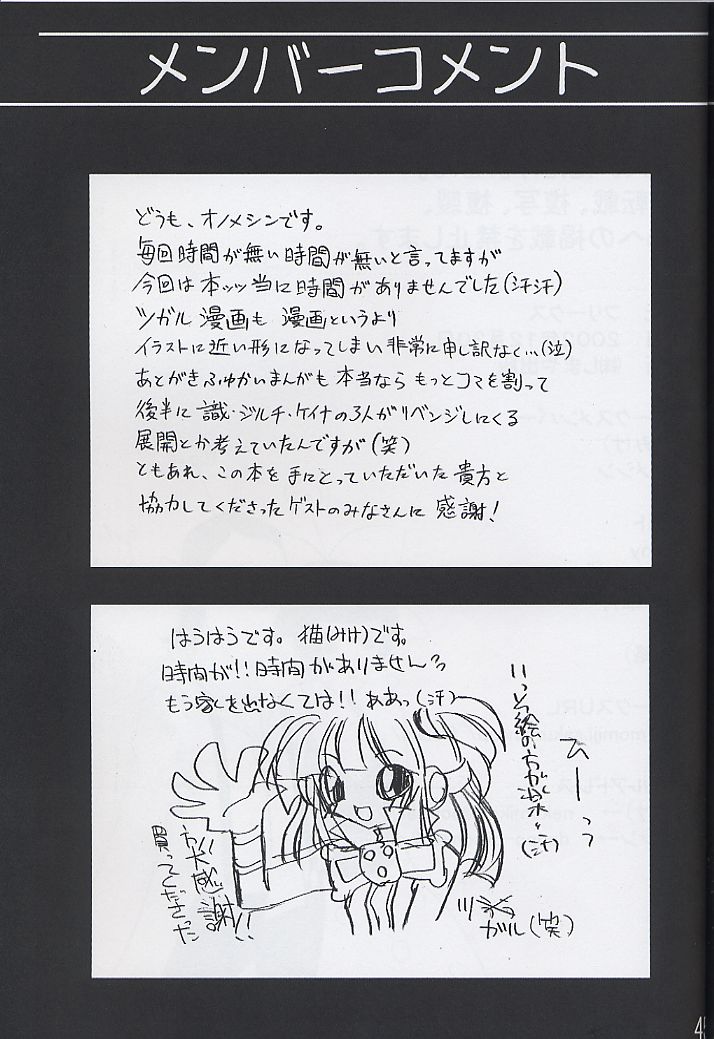 メンバーコメント
どうも、オノメシンです。
毎回時間が無い時間が無いと言ってますが
今回は本ッッ当に時間がありませんでした(汗汗)
ツガル漫画も 漫画というより
イラストに近い形になってしまい非常に申し訳なく…(泣)
あとがきふゆかいまんがも本当ならもっとコマを割って
後半に識・ジルチ・ケイナの3人がリベンジしにくる
展開とか考えていたんですが(笑)
ともあれ、この本を手にとっていただいた貴方と
協力してくださったゲストのみなさんに感謝!
はうはうです。猫(みけ)です。
時間が!!時間がありません
もう家を出なくては!!ああっ(汗)
絵の方が
(汗)
ひーっっ
買ってくださった
方大感謝!!
ツ
ガル(笑)
4